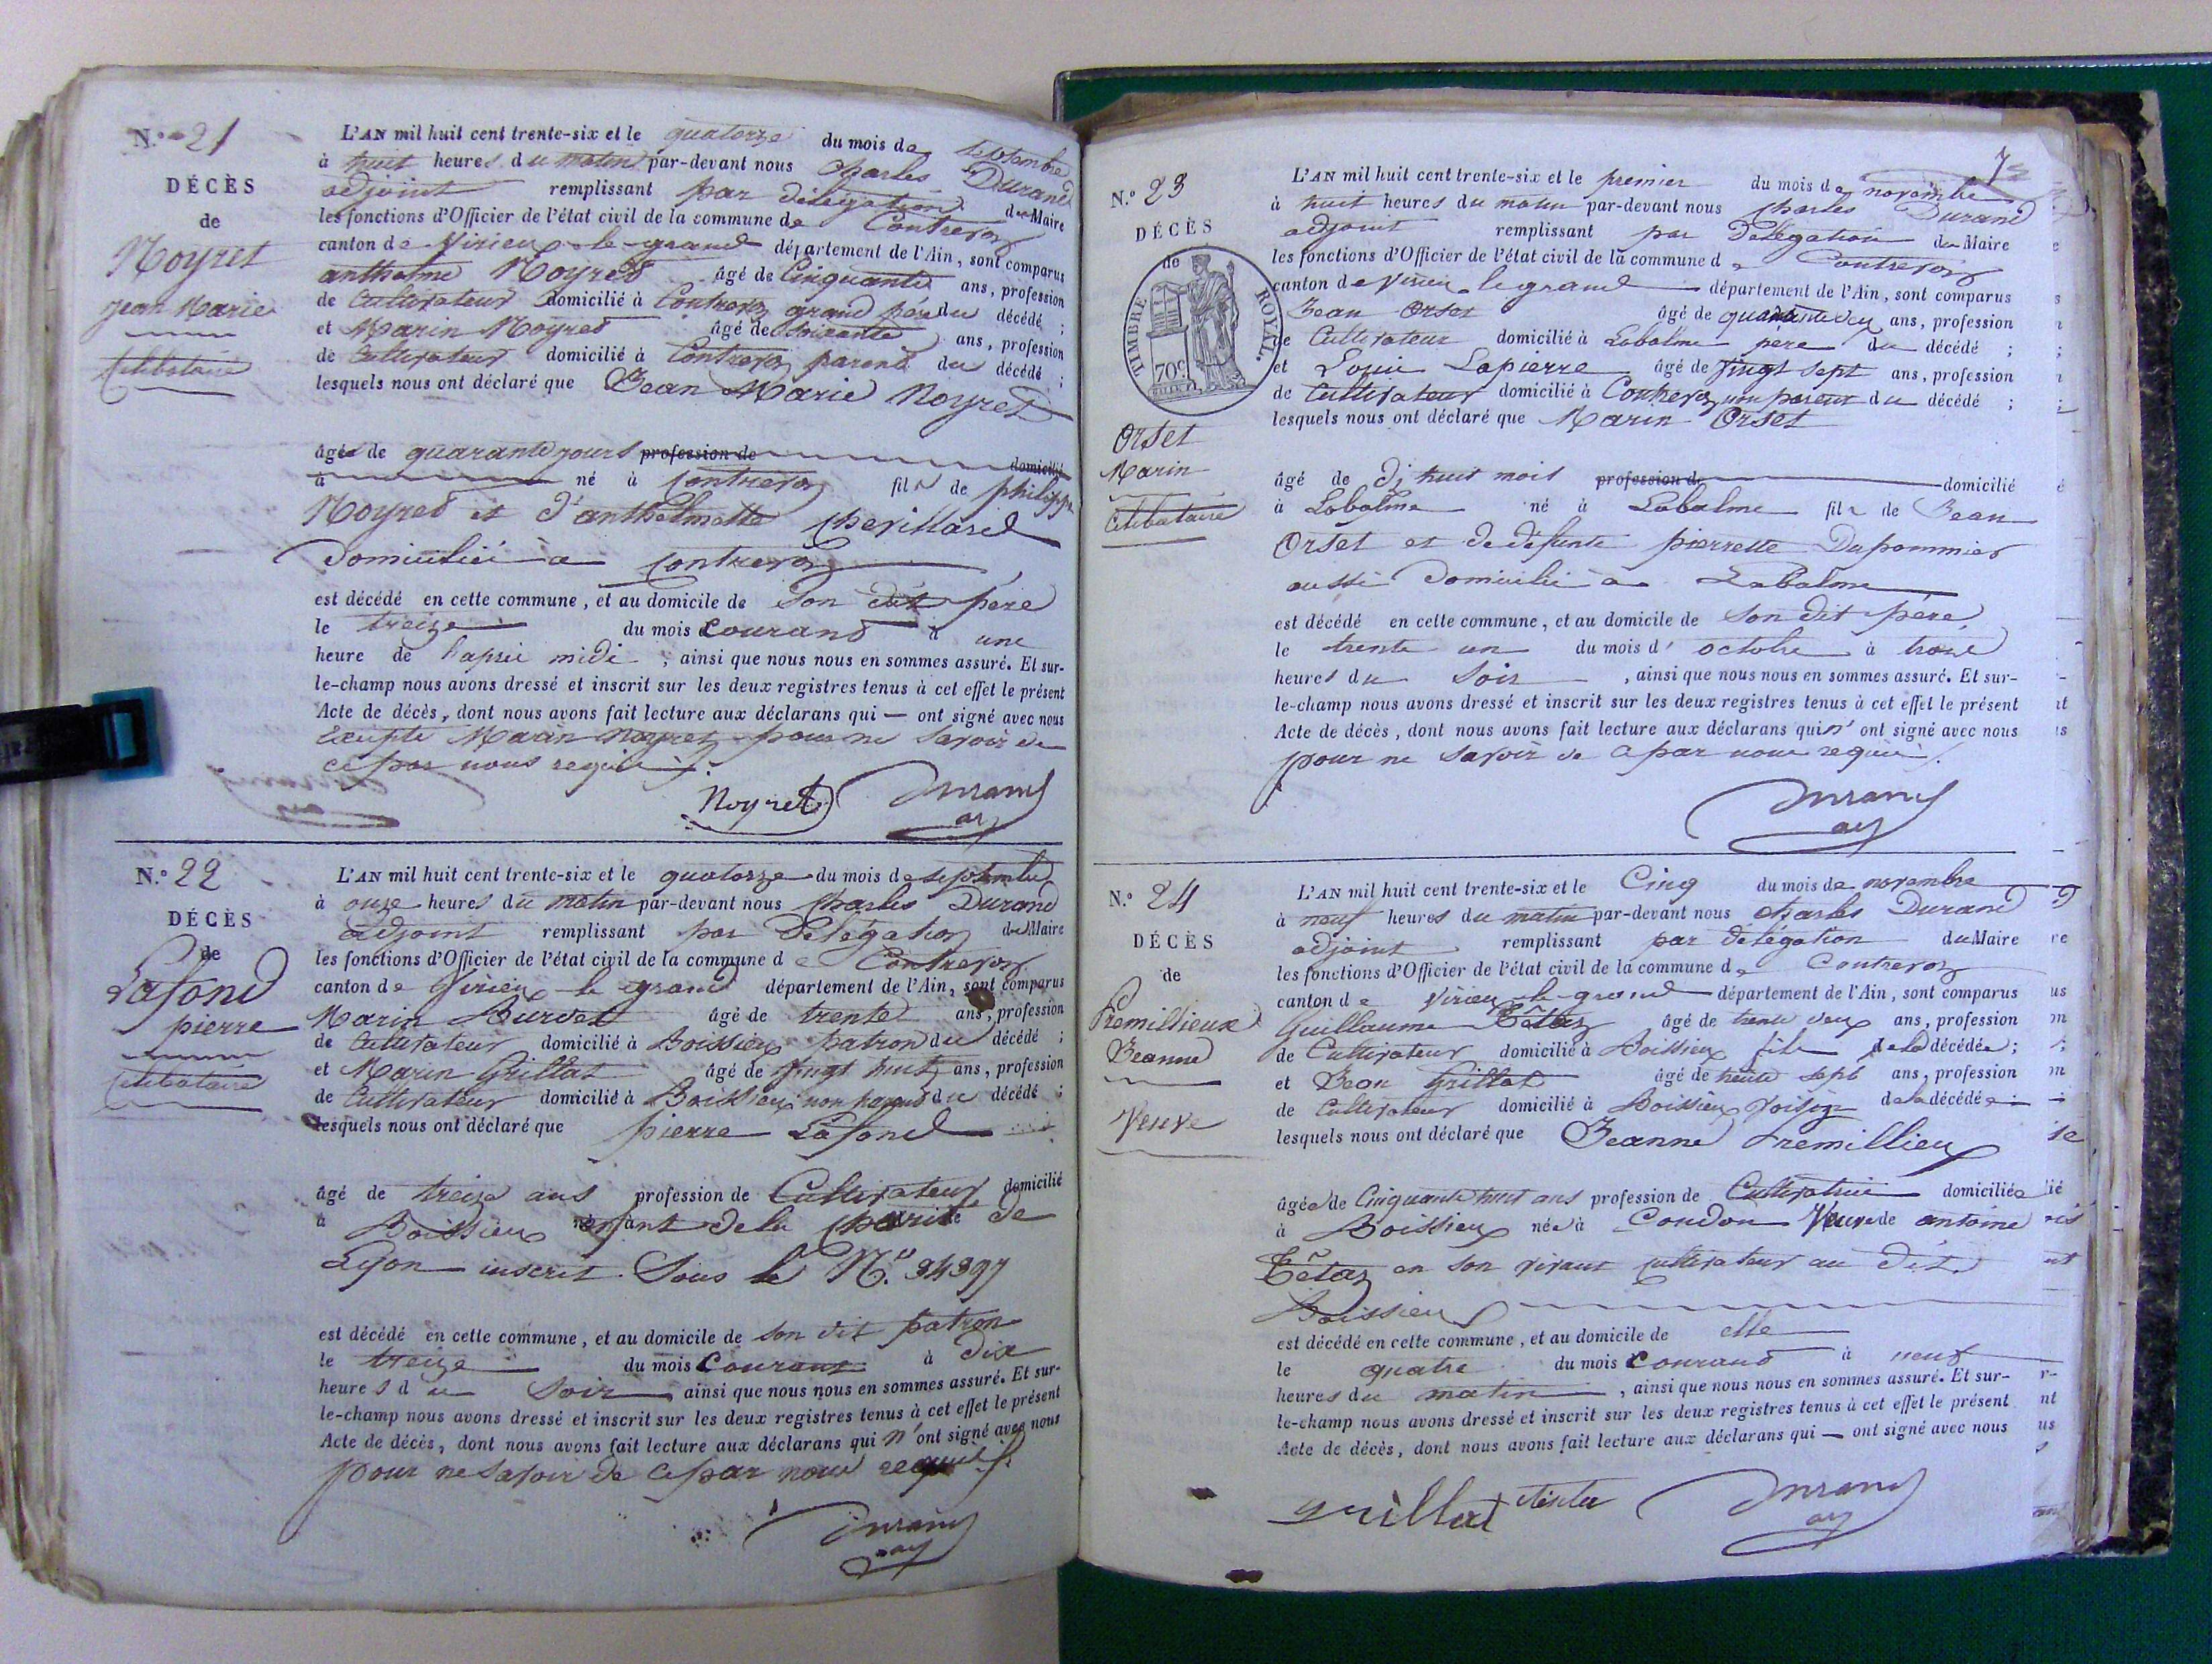 N.º 21
DÉCÈS
de
Noyret
jean Marie
Célibataire
L'AN mil huit cent trente-six et le quatorze du mois de septembre
à huit heures du matin par-devant nous Charles Durand
adjoint remplissant par délégation du Maire
les fonctions d'Officier de l'état civil de la commune de Contrevoz
canton de Virieu-le-grand département de l'Ain, sont comparus
anthelme Noyret âgé de Cinquante ans, profession
de Cultivateur domicilié à Contrevoz grand père du décédé ;
et Marin Noyret âgé de soixante ans, profession
de Cultivateur domicilié à Contrevoz parent du décédé ;
lesquels nous ont déclaré que Jean Marie Noyret
âgé de quarante jours profession de domicilié
à né à Contrevoz fils de philippe
Noyret et d'anthelmette Chevillard
Domiciliés à Contrevoz
est décédé en cette commune, et au domicile de Son dit père
le treize du mois Courant à une
heure de l'après midi ; ainsi que nous nous en sommes assuré. Et sur-
le-champ nous avons dressé et inscrit sur les deux registres tenus à cet effet le présent
Acte de décès, dont nous avons fait lecture aux déclarans qui — ont signé avec nous
Excepté Marin Noyret pour ne savoir de
ce par nous requis.
Noyret Durand
adj
N.º 22
DÉCÈS
de
Lafond
pierre
Célibataire
L'AN mil huit cent trente-six et le quatorze du mois de septembre
à onze heures du matin par-devant nous Charles Durand
adjoint remplissant par Délégation du Maire
les fonctions d'Officier de l'état civil de la commune de Contrevoz
canton de Virieu-le-grand département de l'Ain, sont comparus
Marin Burdet âgé de trente ans, profession
de Cultivateur domicilié à Boissieu patron du décédé ;
et Marin Grillat âgé de vingt huit ans, profession
de Cultivateur domicilié à Boissieu non parent du décédé ;
lesquels nous ont déclaré que pierre Lafond
âgé de treize ans profession de Cultivateur domicilié
à Boissieu enfant de la Charité de
Lyon inscrit Sous le N.º 34397
est décédé en cette commune, et au domicile de son dit patron
le treize du mois Courant à dix
heures du Soir ainsi que nous nous en sommes assuré. Et sur-
le-champ nous avons dressé et inscrit sur les deux registres tenus à cet effet le présent
Acte de décès, dont nous avons fait lecture aux déclarans qui n'ont signé avec nous
pour ne savoir de ce par nous requis.
Durand
adj
N.º 23
DÉCÈS
de
TIMBRE ROYAL.
70c
Orset
Marin
Célibataire
L'AN mil huit cent trente-six et le premier du mois de novembre
à huit heures du matin par-devant nous Charles Durand
adjoint remplissant par Délégation du Maire
les fonctions d'Officier de l'état civil de la commune de Contrevoz
canton de Virieu-le grand département de l'Ain, sont comparus
Jean Orset âgé de quarante deux ans, profession
de Cultivateur domicilié à Labalme père du décédé ;
et Louis Lapierre âgé de vingt sept ans, profession
de Cultivateur domicilié à Contrevoz non parent du décédé ;
lesquels nous ont déclaré que Marin Orset
âgé de dix huit mois profession de domicilié
à Labalme né à Labalme fils de Jean
Orset et de défunte pierrette Dupommier
aussi Domicilié à Labalme
est décédé en cette commune, et au domicile de Son dit père
le trente un du mois d'octobre à
heures du Soir , ainsi que nous nous en sommes assuré. Et sur-
le-champ nous avons dressé et inscrit sur les deux registres tenus à cet effet le présent
Acte de décès, dont nous avons fait lecture aux déclarans qui n'ont signé avec nous
pour ne savoir de ce par nous requis.
Durand
adj
N.º 24
DÉCÈS
de
Premillieux
Jeanne
Veuve
L'AN mil huit cent trente-six et le Cinq du mois de novembre
à neuf heures du matin par-devant nous Charles Durand
adjoint remplissant par délégation du Maire
les fonctions d'Officier de l'état civil de la commune de Contrevoz
canton de Virieu-le-grand département de l'Ain, sont comparus
Guillaume Têtaz âgé de trente deux ans, profession
de Cultivateur domicilié à Boissieu fils de la décédée ;
et Jean Grillat âgé de trente sept ans, profession
de Cultivateur domicilié à Boissieu voisin de la décédée
lesquels nous ont déclaré que Jeanne Premillieu
âgée de Cinquante huit ans profession de Cultivatrice domiciliée
à Boissieu née à Condon Veuve de antoine
Têtaz en son vivant cultivateur au dit
Boissieu
est décédé en cette commune, et au domicile de elle
le quatre du mois Courant à neuf
heures du matin , ainsi que nous nous en sommes assuré. Et sur-
le-champ nous avons dressé et inscrit sur les deux registres tenus à cet effet le présent
Acte de décès, dont nous avons fait lecture aux déclarans qui — ont signé avec nous
Grillat Durand
adj